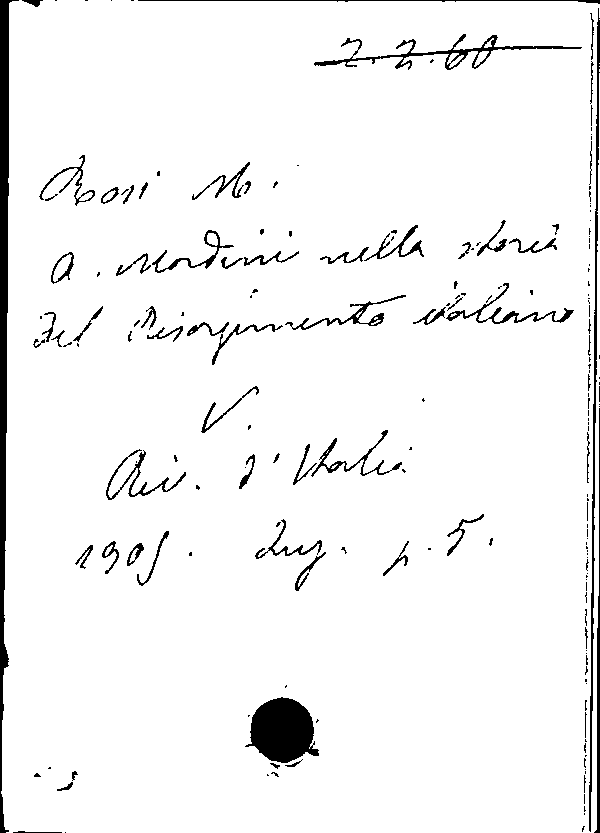 2.2.60
Rosi M.
A. Mordini nella storia
del Risorgimento italiano
V.
Riv. d'Italia
1905. Lug. p. 5.